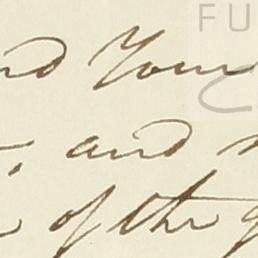 FU
nd Your
, and
of the g